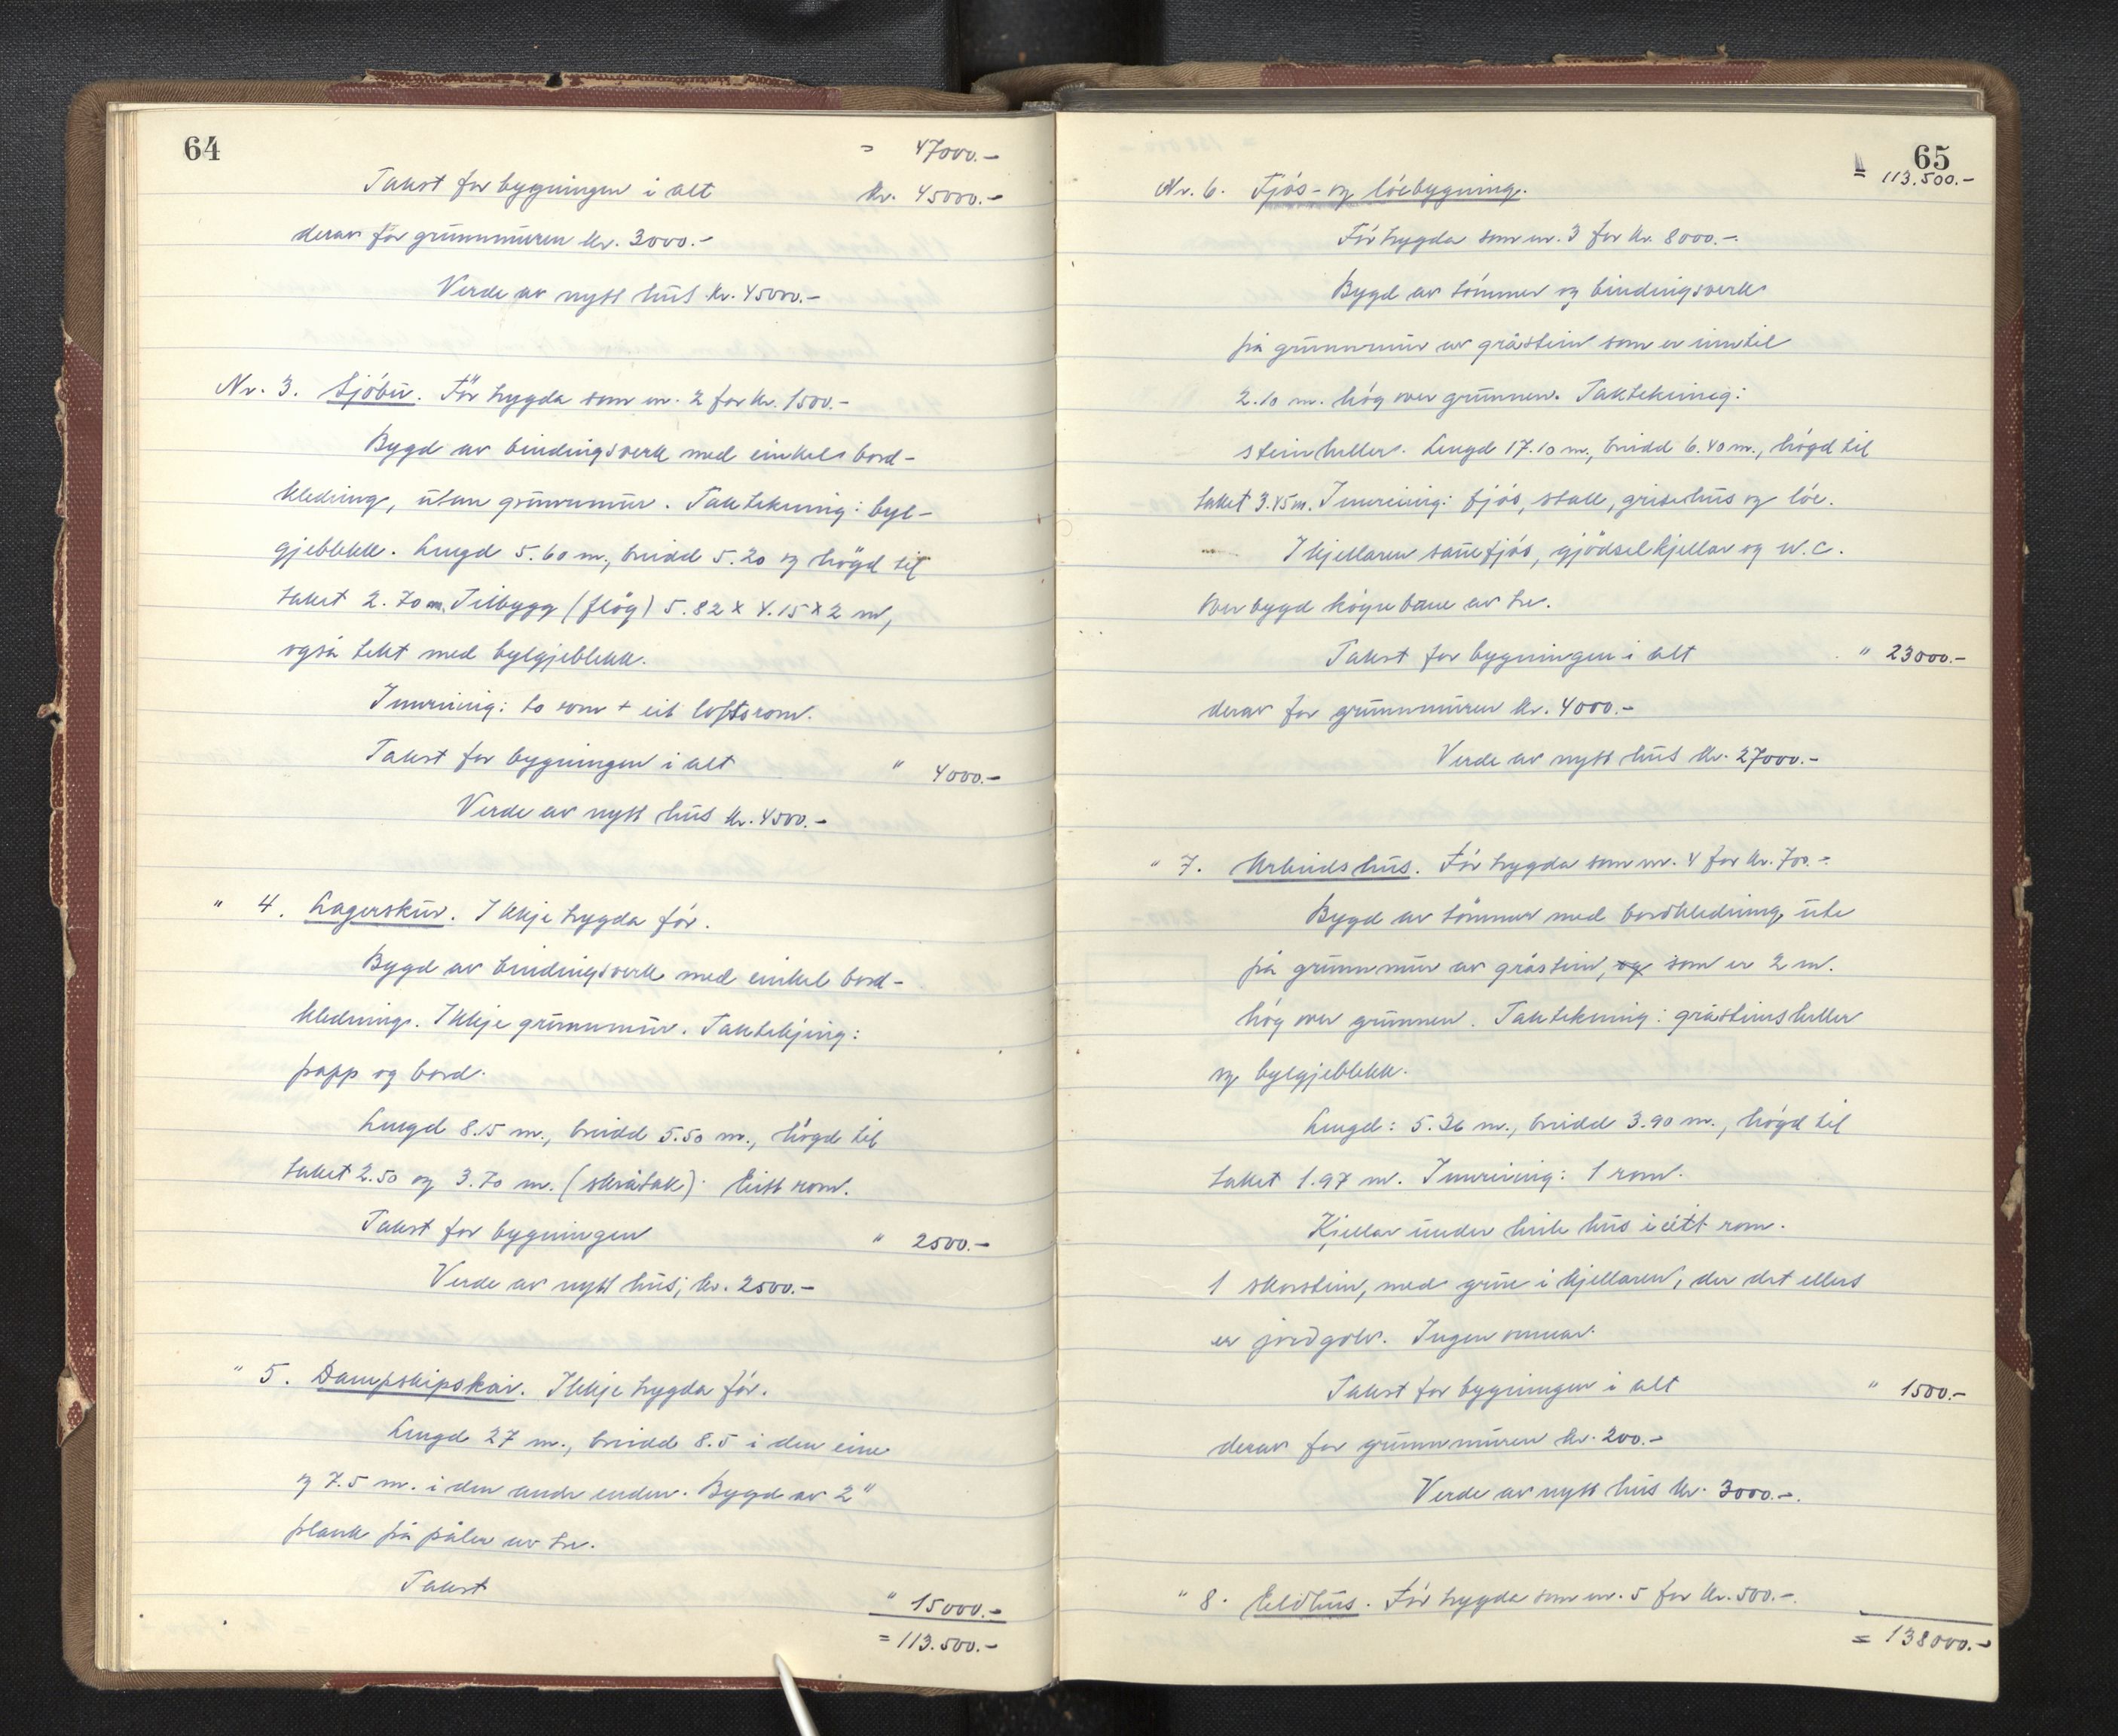 64
= 47000.-
Takst for bygningen i alt kr. 45000.-
derav for grunnmuren kr. 3000.-
Verde av nytt hus kr. 45000.-
Nr. 3. Sjöbu. För trygda som nr. 2 for kr. 1500.-
Bygd av bindingsverk med einkel bord-
kledning, utan grunnmur. Taktekning: byl-
gjeblekk. Lengd 5.60 m., breidd 5.20 og högd til
taket 2.70 m. Tilbygg (flög) 5.82 x 4.15 x 2 m,
også tekt med bylgjeblekk.
Innreiing: to rom + eit loftsrom.
Takst for bygningen i alt " 4000.-
Verde av nytt hus kr. 4500.-
" 4. Lagerskur. Ikkje trygda för.
Bygd av bindingsverk med einkel bord-
kledning. Ikkje grunnmur. Taktekjing:
papp og bord.
Lengd 8.15 m., breidd 5.50 m., högd til
taket 2.50 og 3.70 m. (skråtak). Eitt rom.
Takst for bygningen " 2500.-
Verde av nytt hus; kr. 2500.-
" 5. Dampskipskai. Ikkje trygda för.
Lengd 27 m., breidd 8.5 i den eine
og 7.5 m. i den andre enden. Bygd av 2"
plank på pålar av tre.
Takst " 15000.-
= 113.500.-
65
= 113.500.-
Nr. 6. Fjös- og löebygning.
För trygda som nr. 3 for kr. 8000.-
Bygd av tömmer og bindingsverk
på grunnmur av gråstein som er inntil
2.10 m. hög over grunnen. Taktekning:
steinheller. Lengd 17.10 m., breidd 6.40 m., högd til
taket 3.45 m. Innreiing: fjös, stall, grisehus og löe.
I kjellaren sauefjös, gjödselkjellar og w.c.
Overbygd köyrebane av tre.
Takst for bygningen i alt " 23000.-
derav for grunnmuren kr. 4000.-
Verde av nytt hus kr. 27000.-
" 7. Arbeidshus. För trygda som nr. 4 for kr. 700.-
Bygd av tömmer med bordkledning ute
på grunnmur av gråstein, og som er 2 m.
hög over grunnen. Taktekning: gråsteinsheller
og bylgjeblekk.
Lengd: 5.36 m., breidd 3.90 m., högd til
taket 1.97 m. Innreiing: 1 rom.
Kjellar under heile hus i eitt rom.
1 skorstein, med grue i kjellaren, der det ellers
er jordgolv. Ingen omnar.
Takst for bygningen i alt " 1500.-
derav for grunnmuren kr. 200.-
Verde av nytt hus kr. 3000.-
" 8. Eldhus. För trygda som nr. 5 for kr. 500.-
= 138000.-